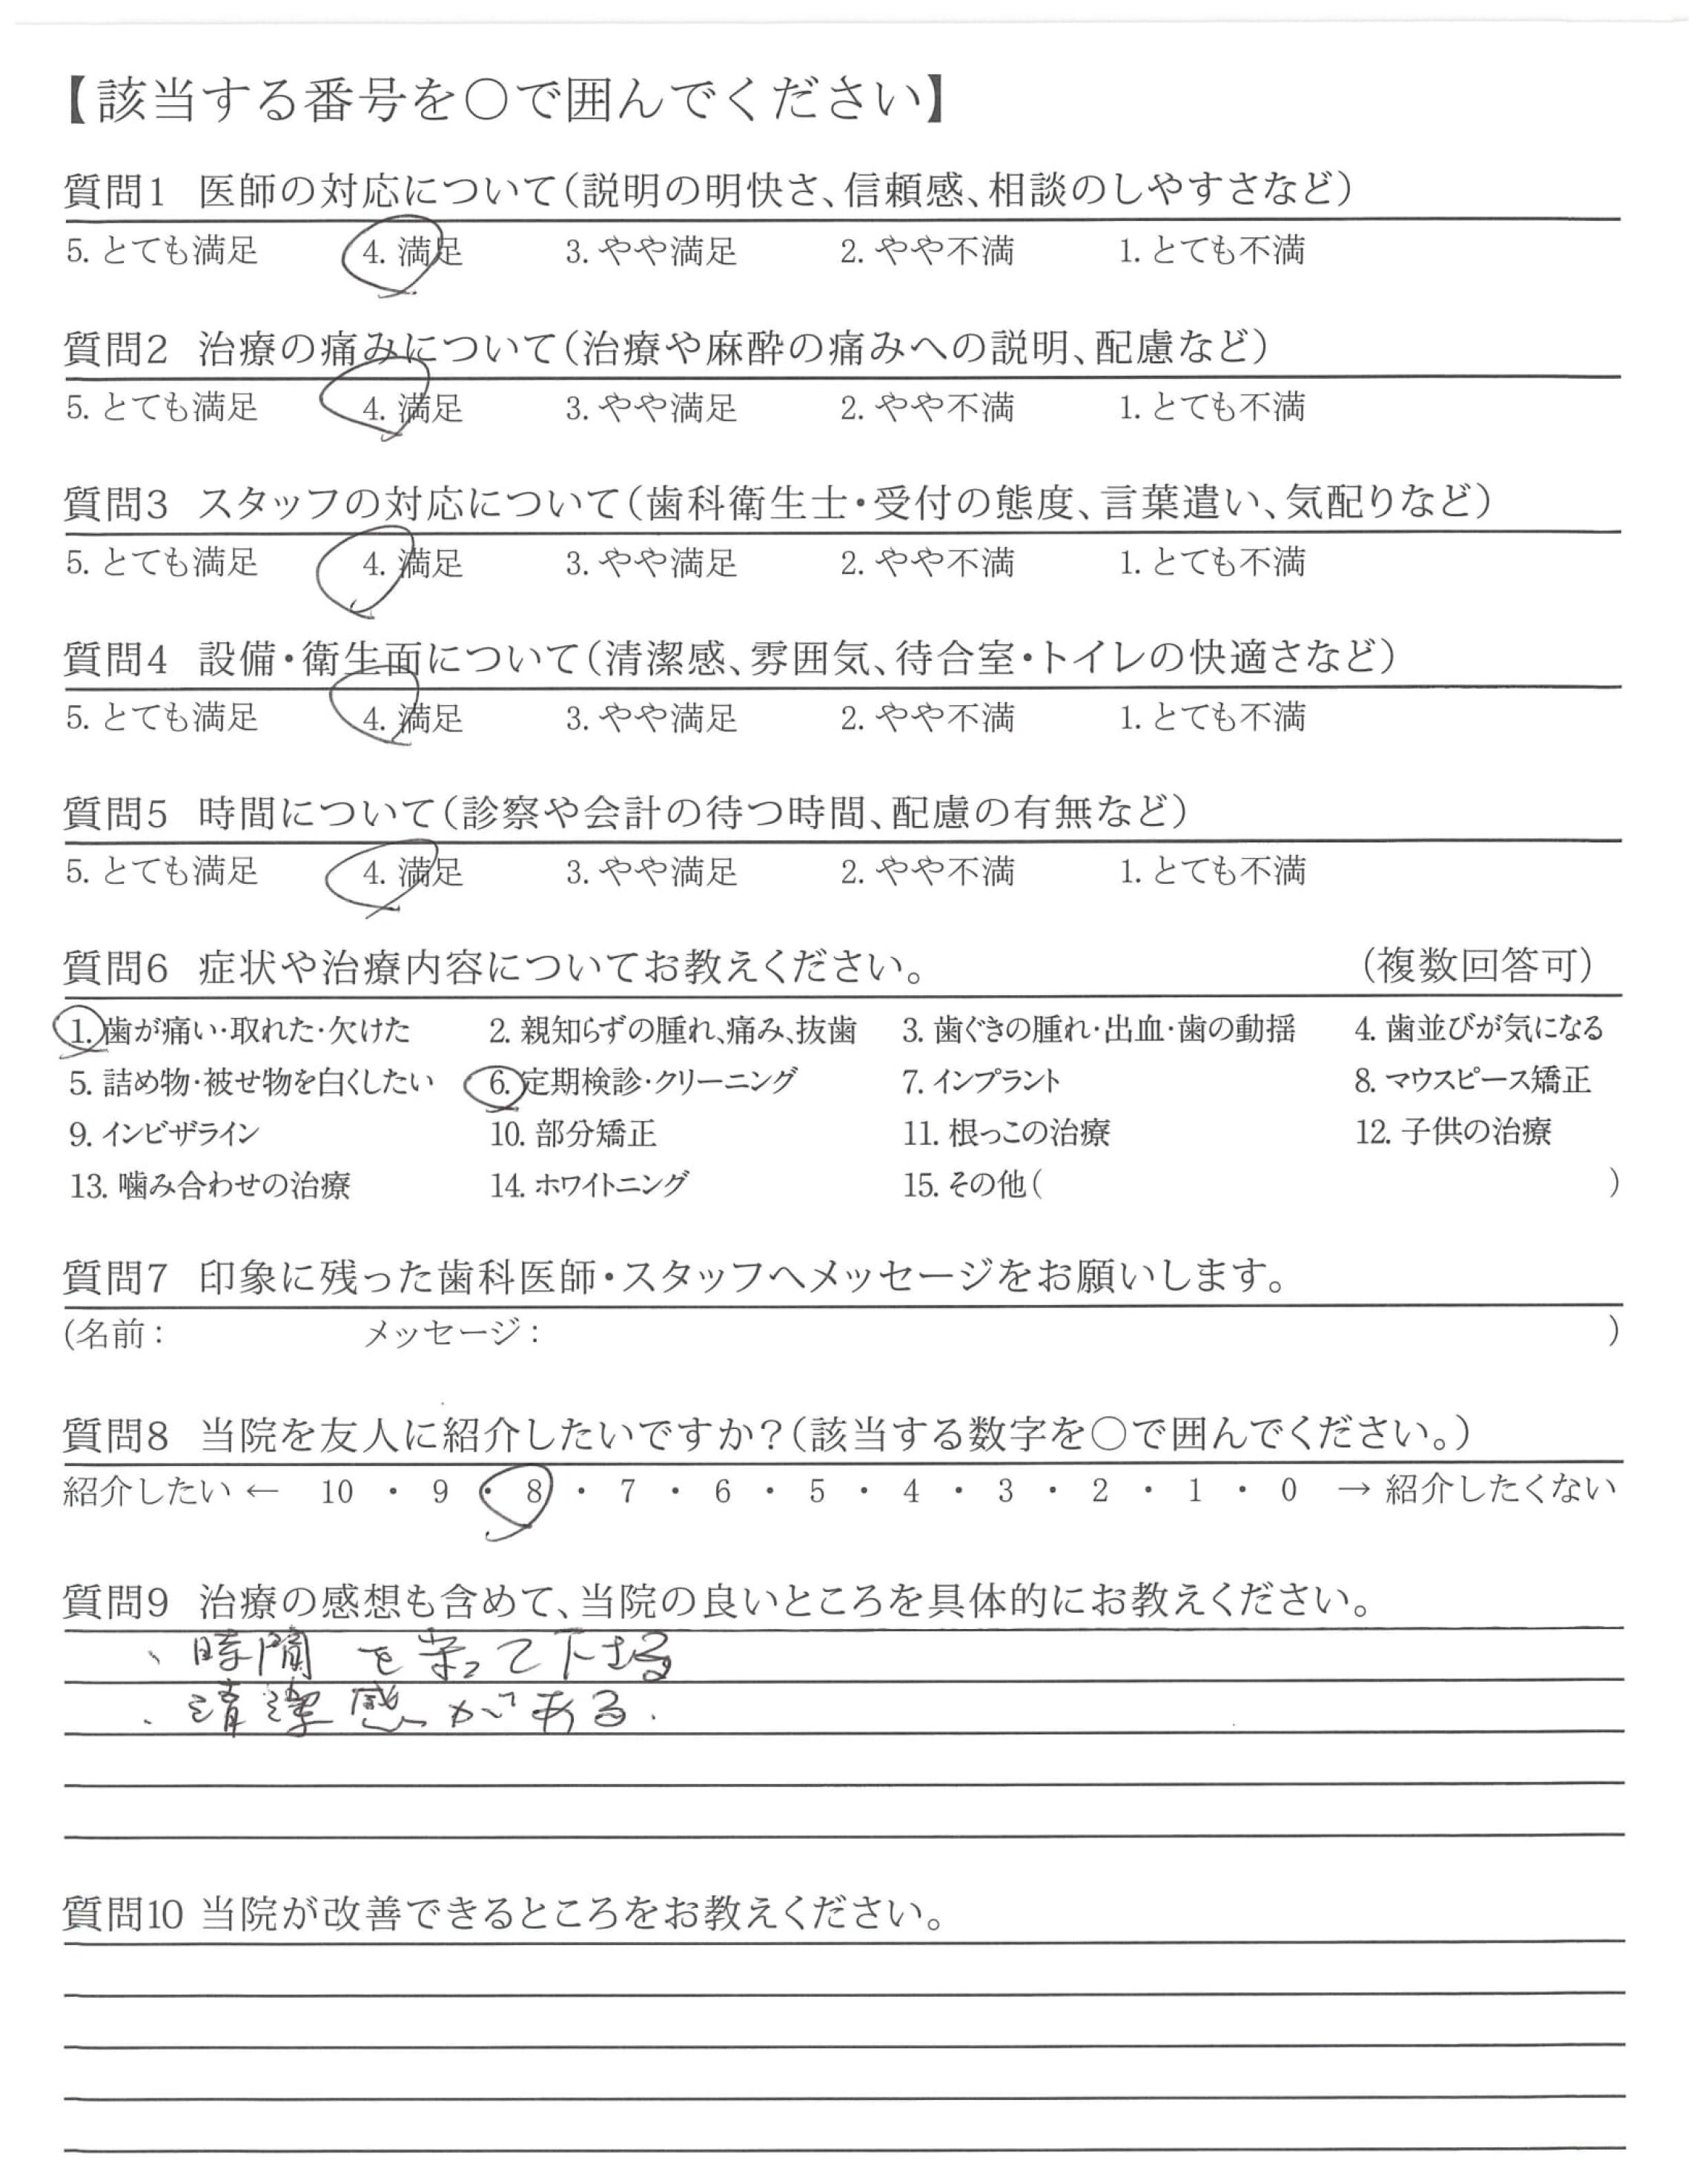 【該当する番号を○で囲んでください】
質問1 医師の対応について(説明の明快さ、信頼感、相談のしやすさなど)
5. とても満足 4. 満足 3. やや満足 2. やや不満 1. とても不満
質問2 治療の痛みについて(治療や麻酔の痛みへの説明、配慮など)
5. とても満足 4. 満足 3. やや満足 2. やや不満 1. とても不満
質問3 スタッフの対応について(歯科衛生士・受付の態度、言葉遣い、気配りなど)
5. とても満足 4. 満足 3. やや満足 2. やや不満 1. とても不満
質問4 設備・衛生面について(清潔感、雰囲気、待合室・トイレの快適さなど)
5. とても満足 4. 満足 3. やや満足 2. やや不満 1. とても不満
質問5 時間について(診察や会計の待つ時間、配慮の有無など)
5. とても満足 4. 満足 3. やや満足 2. やや不満 1. とても不満
質問6 症状や治療内容についてお教えください。 (複数回答可)
1. 歯が痛い・取れた・欠けた 2. 親知らずの腫れ、痛み、抜歯 3. 歯ぐきの腫れ・出血・歯の動揺 4. 歯並びが気になる
5. 詰め物・被せ物を白くしたい 6. 定期検診・クリーニング 7. インプラント 8. マウスピース矯正
9. インビザライン 10. 部分矯正 11. 根っこの治療 12. 子供の治療
13. 噛み合わせの治療 14. ホワイトニング 15. その他( )
質問7 印象に残った歯科医師・スタッフへメッセージをお願いします。
(名前: メッセージ: )
質問8 当院を友人に紹介したいですか?(該当する数字を○で囲んでください。)
紹介したい ← 10 ・ 9 ・ 8 ・ 7 ・ 6 ・ 5 ・ 4 ・ 3 ・ 2 ・ 1 ・ 0 → 紹介したくない
質問9 治療の感想も含めて、当院の良いところを具体的にお教えください。
、時間を守って下さる
・清潔感がある.
質問10 当院が改善できるところをお教えください。